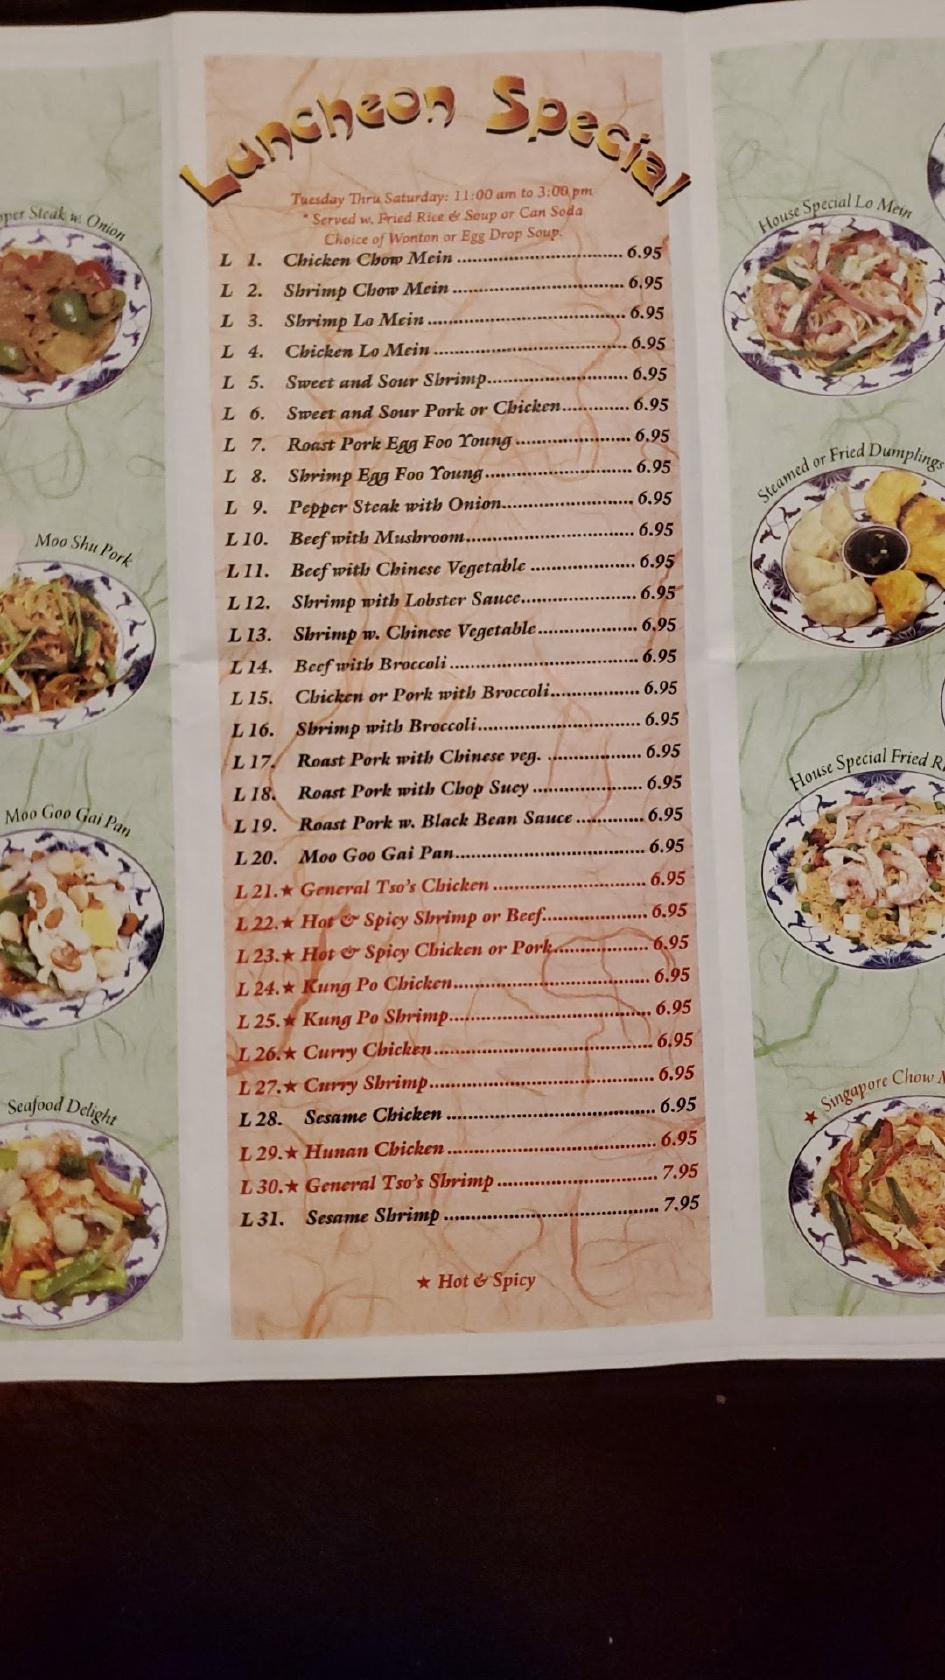 Luncheon Special
Tuesday Thru Saturday: 11:00 am to 3:00 pm
* Served w. Fried Rice & Soup or Can Soda
Choice of Wonton or Egg Drop Soup.
L 1. Chicken Chow Mein 6.95
L 2. Shrimp Chow Mein 6.95
L 3. Shrimp Lo Mein 6.95
L 4. Chicken Lo Mein 6.95
L 5. Sweet and Sour Shrimp 6.95
L 6. Sweet and Sour Pork or Chicken 6.95
L 7. Roast Pork Egg Foo Young 6.95
L 8. Shrimp Egg Foo Young 6.95
L 9. Pepper Steak with Onion 6.95
L 10. Beef with Mushroom 6.95
L 11. Beef with Chinese Vegetable 6.95
L 12. Shrimp with Lobster Sauce 6.95
L 13. Shrimp w. Chinese Vegetable 6.95
L 14. Beef with Broccoli 6.95
L 15. Chicken or Pork with Broccoli 6.95
L 16. Shrimp with Broccoli 6.95
L 17. Roast Pork with Chinese veg. 6.95
L 18. Roast Pork with Chop Suey 6.95
L 19. Roast Pork w. Black Bean Sauce 6.95
L 20. Moo Goo Gai Pan 6.95
L 21.★ General Tso's Chicken 6.95
L 22.★ Hot & Spicy Shrimp or Beef 6.95
L 23.★ Hot & Spicy Chicken or Pork 6.95
L 24.★ Kung Po Chicken 6.95
L 25.★ Kung Po Shrimp 6.95
L 26.★ Curry Chicken 6.95
L 27.★ Curry Shrimp 6.95
L 28. Sesame Chicken 6.95
L 29.★ Hunan Chicken 6.95
L 30.★ General Tso's Shrimp 7.95
L 31. Sesame Shrimp 7.95
★ Hot & Spicy
Steak w. Onion
Moo Shu Pork
Moo Goo Gai Pan
Seafood Delight
House Special Lo Mein
Steamed or Fried Dumplings
House Special Fried
★ Singapore Chow